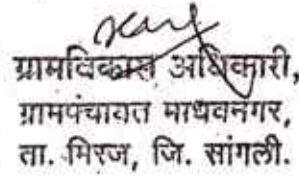 ग्रामविकास अधिकारी,
ग्रामपंचायत माधवनगर,
ता. मिरज, जि. सांगली.